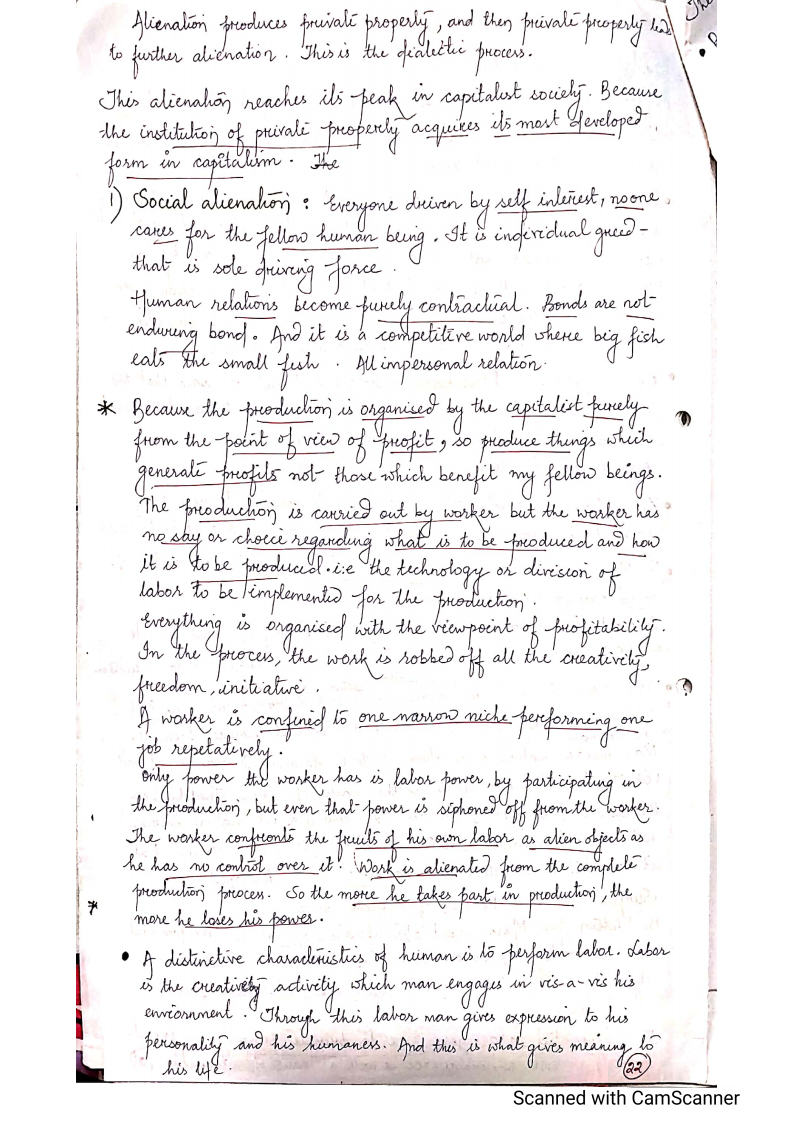 Alienation produces private property, and then private property leads
to further alienation. This is the dialectic process.
This alienation reaches its peak in capitalist society. Because
the institution of private property acquires its most developed
form in capitalism. The
1) Social alienation : Everyone driven by self interest, no one
cares for the fellow human being. It is individual greed
that is sole driving force.
Human relations become purely contractual. Bonds are not
enduring bond. And it is a competitive world where big fish
eats the small fish. All impersonal relation.
* Because the production is organised by the capitalist purely
from the point of view of profit, so produce things which
generate profits not those which benefit my fellow beings.
The production is carried out by worker but the worker has
no say or choice regarding what is to be produced and how
it is to be produced. i.e the technology or division of
labor to be implemented for the production.
Everything is organised with the viewpoint of profitability.
In the process, the work is robbed off all the creativity,
freedom, initiative.
A worker is confined to one narrow niche performing one
job repetatively.
Only power the worker has is labor power, by participating in
the production, but even that power is siphoned off from the worker.
The worker confronts the fruits of his own labor as alien objects as
he has no control over it. Work is alienated from the complete
production process. So the more he takes part in production, the
* more he loses his power.
• A distinctive characteristics of human is to perform labor. Labor
is the creative activity which man engages in vis-a-vis his
envirornment. Through this labor man gives expression to his
personality and his humaness. And this is what gives meaning to
his life.
22
Scanned with CamScanner